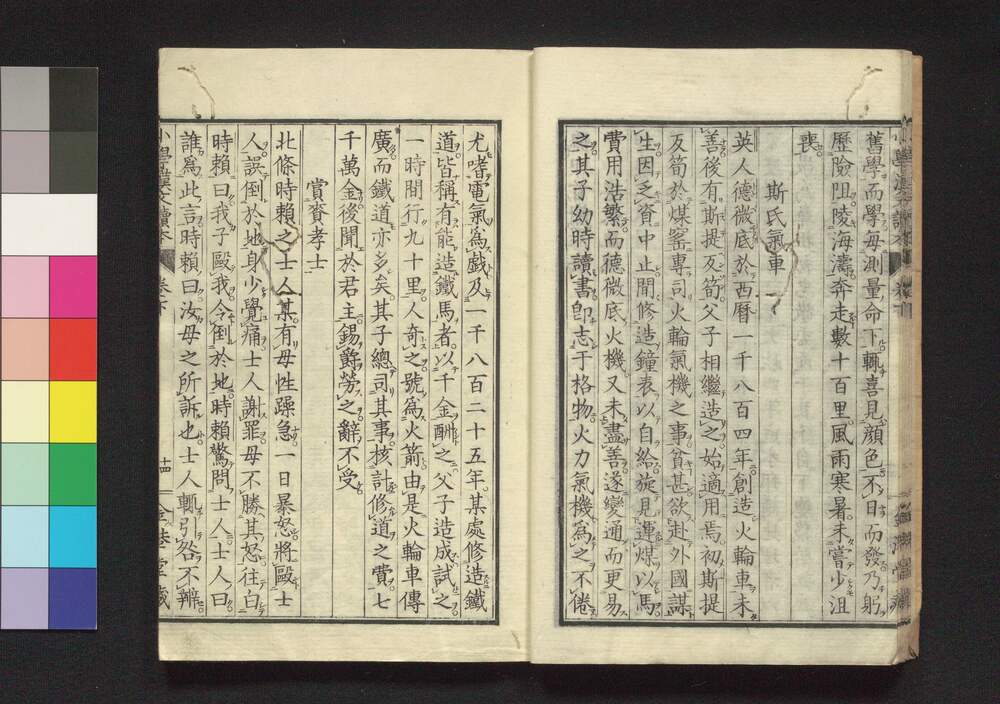 舊學而學每測量命下輒喜見顔色不日而發乃躬
歷險阻陵海濤奔走數十百里風雨寒暑未嘗少沮
喪
斯氏氣車
英人德微底於西曆一千八百四年創造火輪車未
善後有斯提反筍父子相繼造之始適用焉初斯提
反筍於煤窰專司火輪氣機之事貧甚欲赴外國謀
生因乏資中止間修造鐘表以自給旋見運煤以馬
費用浩繁而德微底火機又未盡善遂變通而更易
之其子幼時讀書卽志于格物火力氣機爲之不倦
尤嗜電氣爲戲及一千八百二十五年某處修造鐵
道皆稱有能造鐵馬者以千金酬之父子造成試之
一時間行九十里人奇之號爲火箭由是火輪車傳
廣而鐵道亦多矣其子總司其事核計修道之費七
千萬金後聞於君主錫爵勞之辭不受
賞賚孝士
北條時賴之士人某有母性躁急一日暴怒將毆士
人誤倒於地身少覺痛士人謝罪母不勝其怒往白
時賴曰我子毆我令倒於地時賴驚問士人士人曰
誰爲此言時賴曰汝母之所訴也士人輒引咎不辨
小學漢文讀本 卷下 十四 金港堂藏